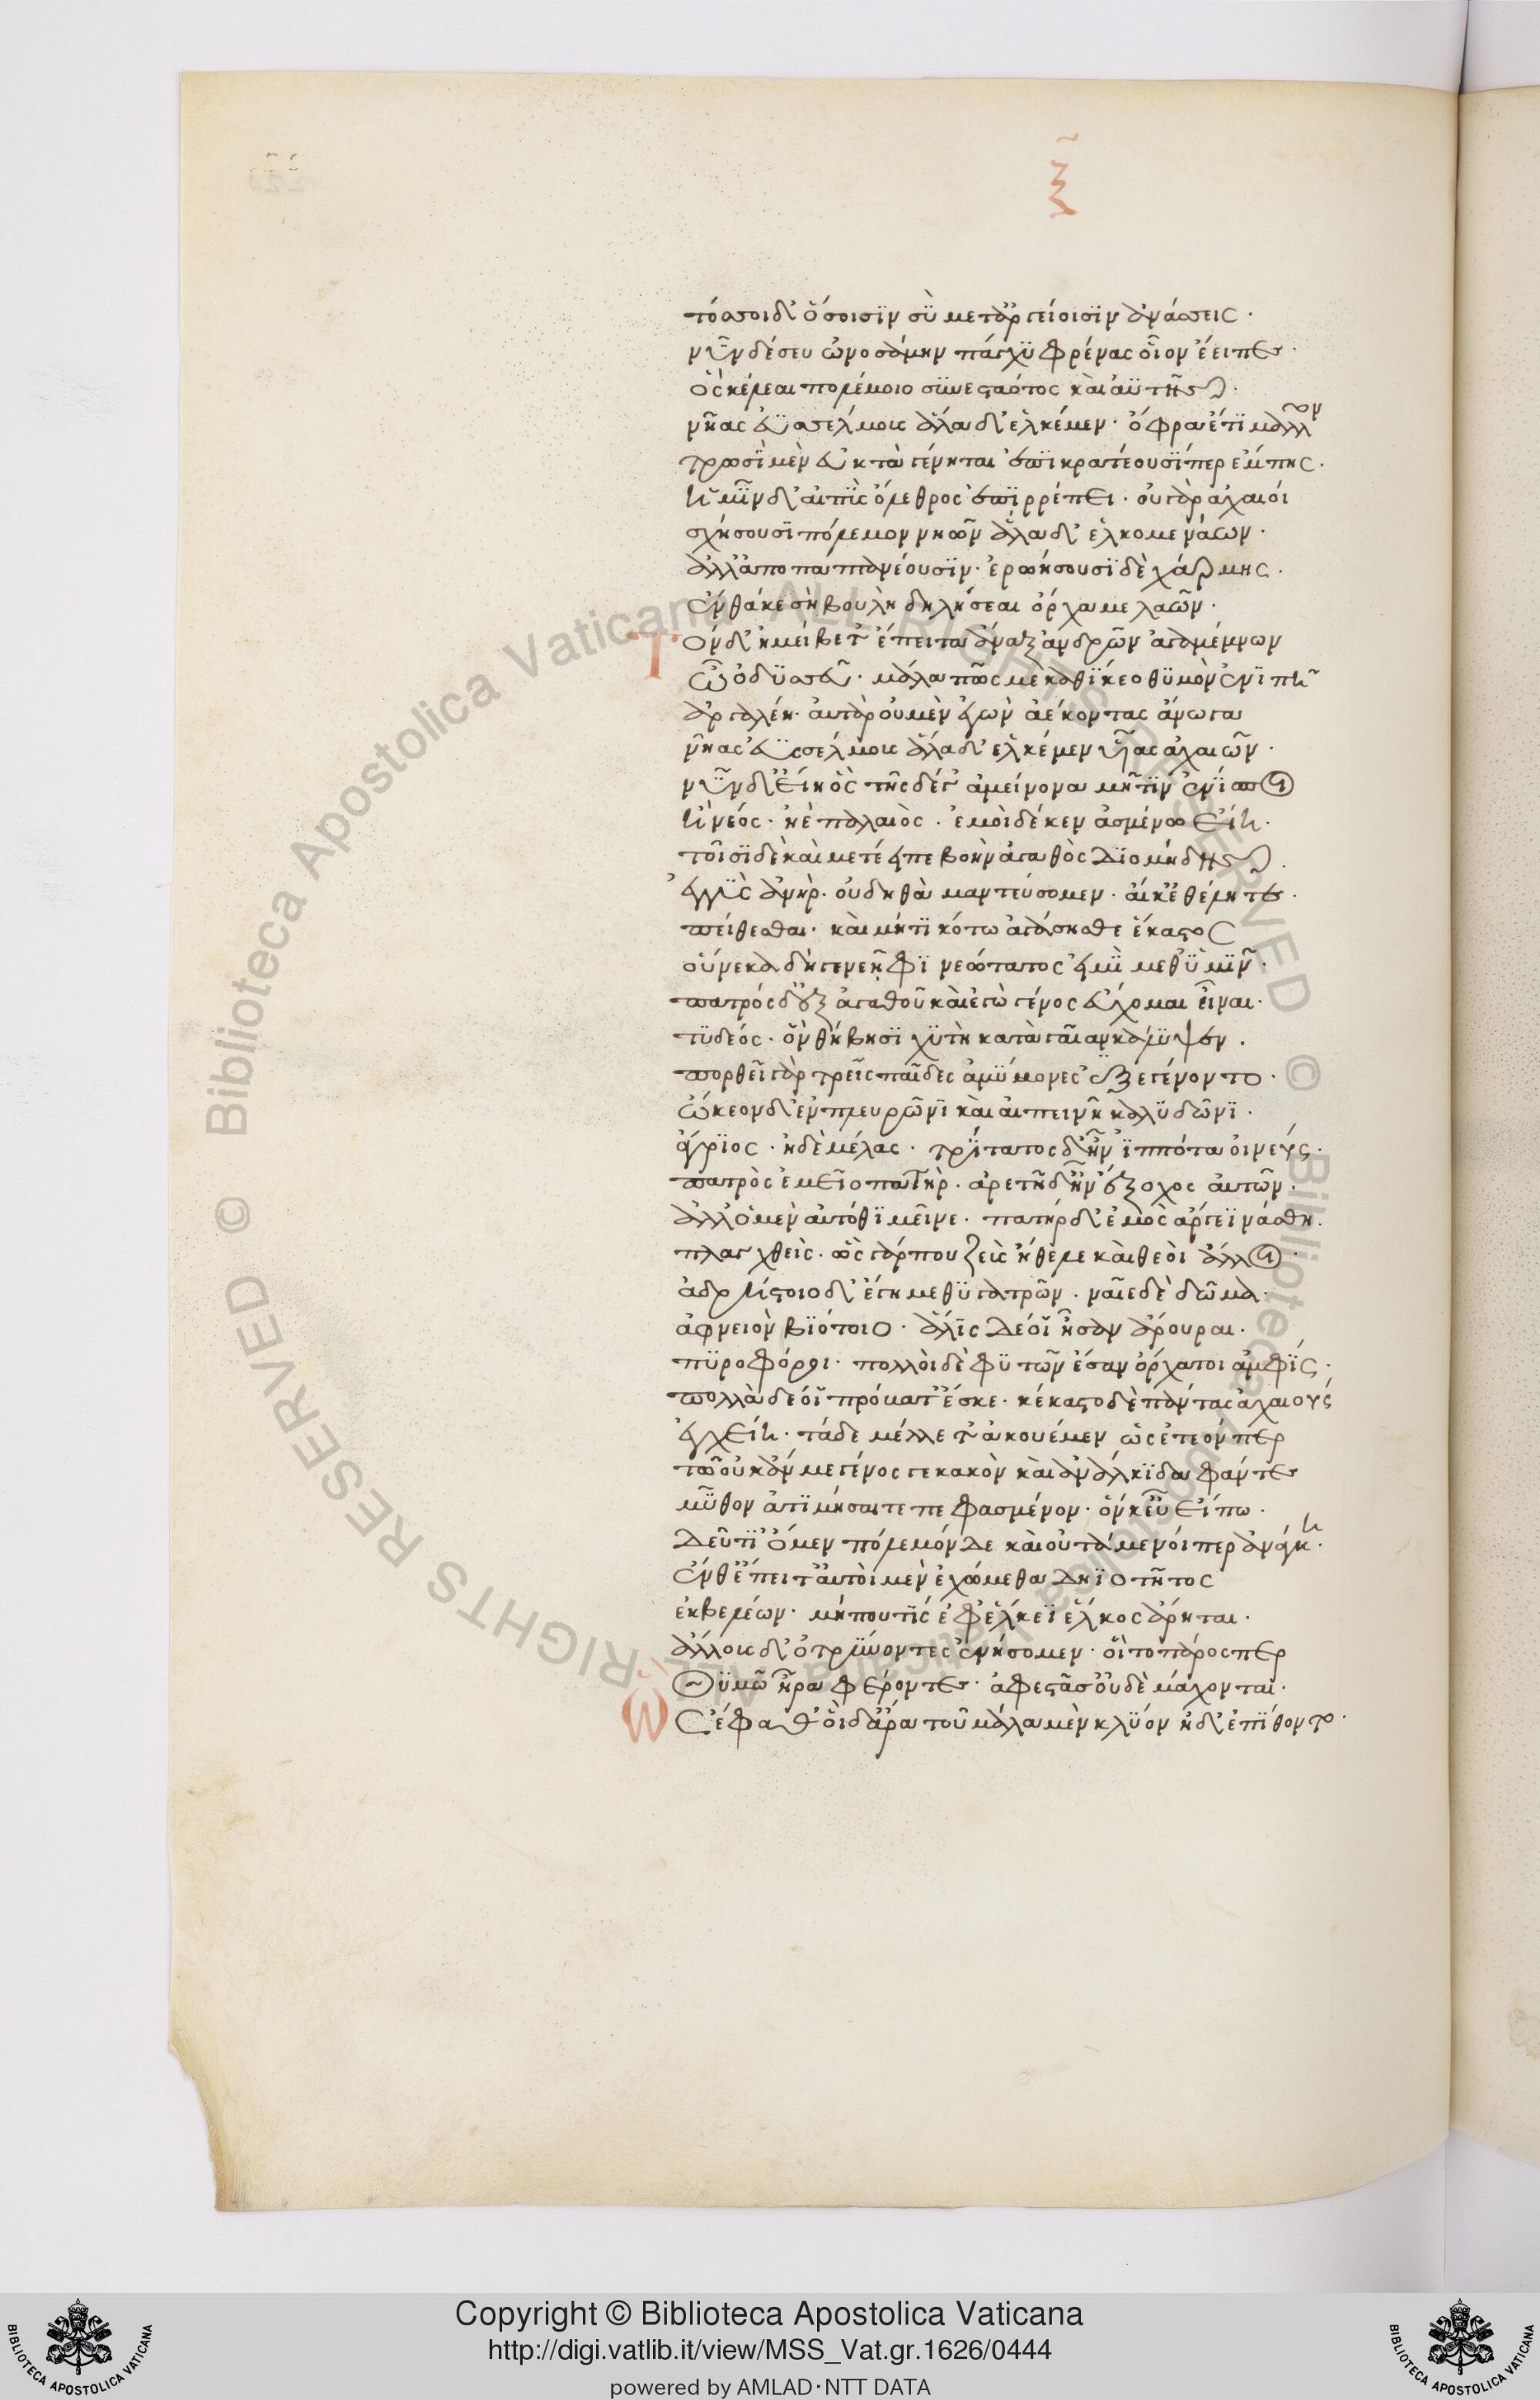 ξ
τόσσοιδ' ὅσοισϊν σὺ μετ' ἀργείοισϊν ἀνάσσεις·
νῦν δέ σευ ὠνοσάμην πάγχϋ φρένας οἷον ἔειπες·
ὃς κέλεαι πολέμοιο συνεσταότος καὶ ἀϋτῆς·
νῆας ἐϋσσέλμους ἅλαδ' ἑλκέμεν· ὄφρα ἔτι μᾶλλον
τρωσὶ μὲν εὐκτὰ γένηται ἐπικρατέουσί περ ἔμπης·
ἡμῖν δ' αἰπὺς ὄλεθρος ἐπιρρέπει· οὐ γὰρ ἀχαιοί
σχήσουσι πόλεμον νηῶν ἅλαδ' ἑλκομενάων·
ἀλλ' ἀποπαπτανέουσϊν· ἐρωήσουσι δὲ χάρμης·
ἔνθά κε σὴ βουλὴ δηλήσεαι ὄρχαμε λαῶν·
Τὸν δ' ἠμείβετ' ἔπειτα ἄναξ ἀνδρῶν ἀγαμέμνων
ὦ ὀδϋσσεῦ· μάλα πῶς με καθίκεο θϋμὸν ἐνιπῆ
ἀργαλέη· ἀτὰρ οὐ μὲν ἐγὼν ἀέκοντας ἄνωγα
νῆας ἐϋσσέλμους ἅλαδ' ἑλκέμεν υἷας ἀχαιῶν·
νῦν δ' εἴη ὃς τῆς δέ γ' ἀμείνονα μῆτϊν ἐνίσποι
ἢ νέος· ἠὲ παλαιός· ἐμοὶ δέ κεν ἀσμένω εἴη·
τοῖσϊ δὲ καὶ μετέειπε βοὴν ἀγαθὸς Διομήδης·
ἐγγὺς ἀνήρ· οὐ δηθὰ μαντεύσομεν· αἴ κ' ἐθέλητε·
πείθεσθαι· καὶ μήτϊ κότω ἀγάσησθε ἕκαστος
οὕνεκα δὴ γενεῆφϊ νεώτατος εἰμὶ μεθ' ὑμῖν·
πατρὸς δ' ἐξ ἀγαθοῦ καὶ ἐγὼ γένος εὔχομαι εἶναι·
τϋδέος· ὃν θήβησϊ χϋτὴ κατὰ γαῖα κάλϋψεν·
πορθεῖ γὰρ τρεῖς παῖδες ἀμύμονες ἐξεγένοντο·
ᾤκεον δ' ἐν πλευρῶνϊ καὶ αἰπεινῆ καλϋδῶνϊ·
ἄγρϊος· ἠδὲ μέλας· τρίτατος δ' ἦν ἱππότα οἰνεύς·
πατρὸς ἐμεῖο πατήρ· ἀρετῆ δ' ἦν ἔξοχος αὐτῶν·
ἀλλ' ὁ μὲν αὐτόθϊ μεῖνε· πατὴρ δ' ἐμὸς ἄργεϊ νάσθη·
πλαγχθείς· ὣς γάρ που ζεὺς ἤθελε καὶ θεοὶ ἄλλοι·
ἀδρήστοιο δ' ἔγημε θϋγατρῶν· ναῖε δὲ δῶμα·
ἀφνειὸν βϊότοιο· ἅλϊς δέ οἱ ἦσαν ἄρουραι·
πϋροφόροι· πολλοὶ δὲ φϋτῶν ἔσαν ὄρχατοι ἀμφίς·
πολλὰ δέ οἱ πρόβατ' ἔσκε· κέκαστο δὲ πάντας ἀχαιούς
ἐγχείη· τάδε μέλλετ' ἀκουέμεν ὡς ἐτεόν περ
τῶ οὐκ ἄν με γένος γε κακὸν καὶ ἀνάλκϊδα φάντες
μῦθον ἀτϊμήσαιτε πεφασμένον· ὅν κ' εὖ εἴπω·
Δεῦτ' ἴομεν πόλεμόνδε καὶ οὐτάμενοί περ ἀνάγκη·
ἔνθ' ἔπειτ' αὐτοὶ μὲν ἐχώμεθα δηϊοτῆτος
ἐκ βελέων· μήπου τὶς ἐφ' ἕλκεϊ ἕλκος ἄρηται·
ἄλλους δ' ὀτρύνοντες ἐνήσομεν· οἳ τὸ πάρος περ
Θϋμῶ ἦρα φέροντες· ἀφεστᾶσ' οὐδὲ μάχονται·
Ὣς ἔφαθ' οἱ δ' ἄρα τοῦ μάλα μὲν κλύον ἠδ' ἐπίθοντο·
© Biblioteca Apostolica Vaticana ALL RIGHTS RESERVED
© Biblioteca Apostolica Vaticana ALL RIGHTS RESERVED
Copyright © Biblioteca Apostolica Vaticana
http://digi.vatlib.it/view/MSS_Vat.gr.1626/0444
powered by AMLAD·NTT DATA
BIBLIOTECA APOSTOLICA VATICANA
BIBLIOTECA APOSTOLICA VATICANA